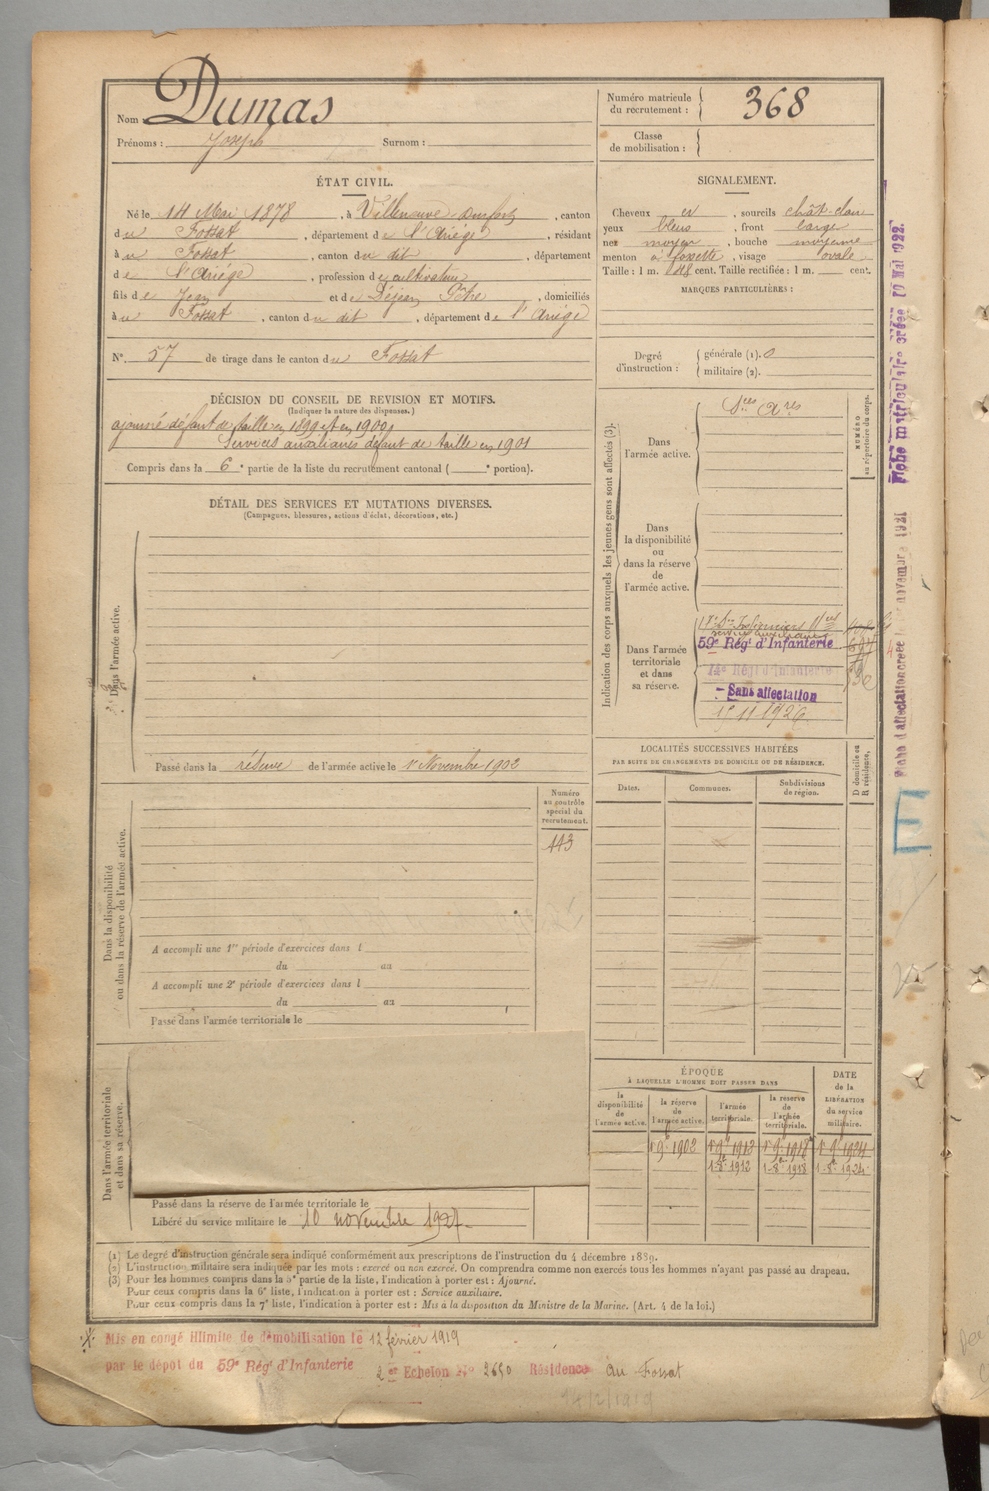 Nom : Dumas
Prénoms : Joseph Surnom :
Numéro matricule du recrutement : 368
Classe de mobilisation :
ÉTAT CIVIL.
Né le 14 Mai 1878, à Villeneuve-Durfort, canton
du Fossat, département de l'Ariège, résidant
à u Fossat, canton du dit, département
de l'Ariège, profession de cultivateur
fils de Jean et de Déjean, domiciliés
à u Fossat, canton du dit, département de l'Ariège
N° 57 de tirage dans le canton du Fossat
SIGNALEMENT.
Cheveux et, sourcils chât. clair
yeux bleus, front large
nez moyen, bouche moyenne
menton à fossette, visage ovale
Taille : 1 m. 48 cent. Taille rectifiée : 1 m. cent.
MARQUES PARTICULIÈRES :
Degré d'instruction : générale (1). 0
militaire (2).
DÉCISION DU CONSEIL DE REVISION ET MOTIFS.
(Indiquez la nature des dispenses.)
ajourné défaut de taille en 1899 et en 1900,
Services auxiliaires défaut de taille en 1901
Compris dans la 6e partie de la liste du recrutement cantonal ( e portion).
DÉTAIL DES SERVICES ET MUTATIONS DIVERSES.
(Campagnes, blessures, actions d'éclat, décorations, etc.)
Dans l'armée active.
Passé dans la réserve de l'armée active le 1er Novembre 1902
Indication des corps auxquels les jeunes gens sont affectés (3).
NUMÉRO au répertoire du corps.
Dans l'armée active. Sces Ares
Dans la disponibilité ou dans la réserve de l'armée active.
Dans l'armée territoriale et dans sa réserve.
59e Régt d'Infanterie
14e Régt d'Infanterie
- Sans affectation
LOCALITÉS SUCCESSIVES HABITÉES
PAR SUITE DE CHANGEMENTS DE DOMICILE OU DE RÉSIDENCE.
Dates. Communes. Subdivisions de région. D domicile ou R résidence.
Dans la disponibilité ou dans la réserve de l'armée active.
Numéro au contrôle spécial du recrutement.
113
A accompli une 1re période d'exercices dans l
du au
A accompli une 2e période d'exercices dans l
du au
Passé dans l'armée territoriale le
Dans l'armée territoriale et dans sa réserve.
Passé dans la réserve de l'armée territoriale le
Libéré du service militaire le 10 novembre 1927.
ÉPOQUE
À LAQUELLE L'HOMME DOIT PASSER DANS
la disponibilité de l'armée active. la réserve de l'armée active. l'armée territoriale. la réserve de l'armée territoriale. DATE de la LIBÉRATION du service militaire.
1er 9bre 1902 1er 9bre 1912 1er 9bre 1918 1er 9bre 1924
1-8bre 1912 1-8bre 1918 1-8bre 1924
(1) Le degré d'instruction générale sera indiqué conformément aux prescriptions de l'instruction du 4 décembre 1889.
(2) L'instruction militaire sera indiquée par les mots : exercé ou non exercé. On comprendra comme non exercés tous les hommes n'ayant pas passé au drapeau.
(3) Pour les hommes compris dans la 5e partie de la liste, l'indication à porter est : Ajourné.
Pour ceux compris dans la 6e liste, l'indication à porter est : Service auxiliaire.
Pour ceux compris dans la 7e liste, l'indication à porter est : Mis à la disposition du Ministre de la Marine. (Art. 4 de la loi.)
Mis en congé illimité de démobilisation le 12 février 1919
par le dépôt du 59e Régt d'Infanterie 2er Echelon No 2650 Résidence au Fossat
14/2/1919
Fiche d'affectation créée le novembre 1921
Fiche matriculaire créée 10 Mai 1922.
E